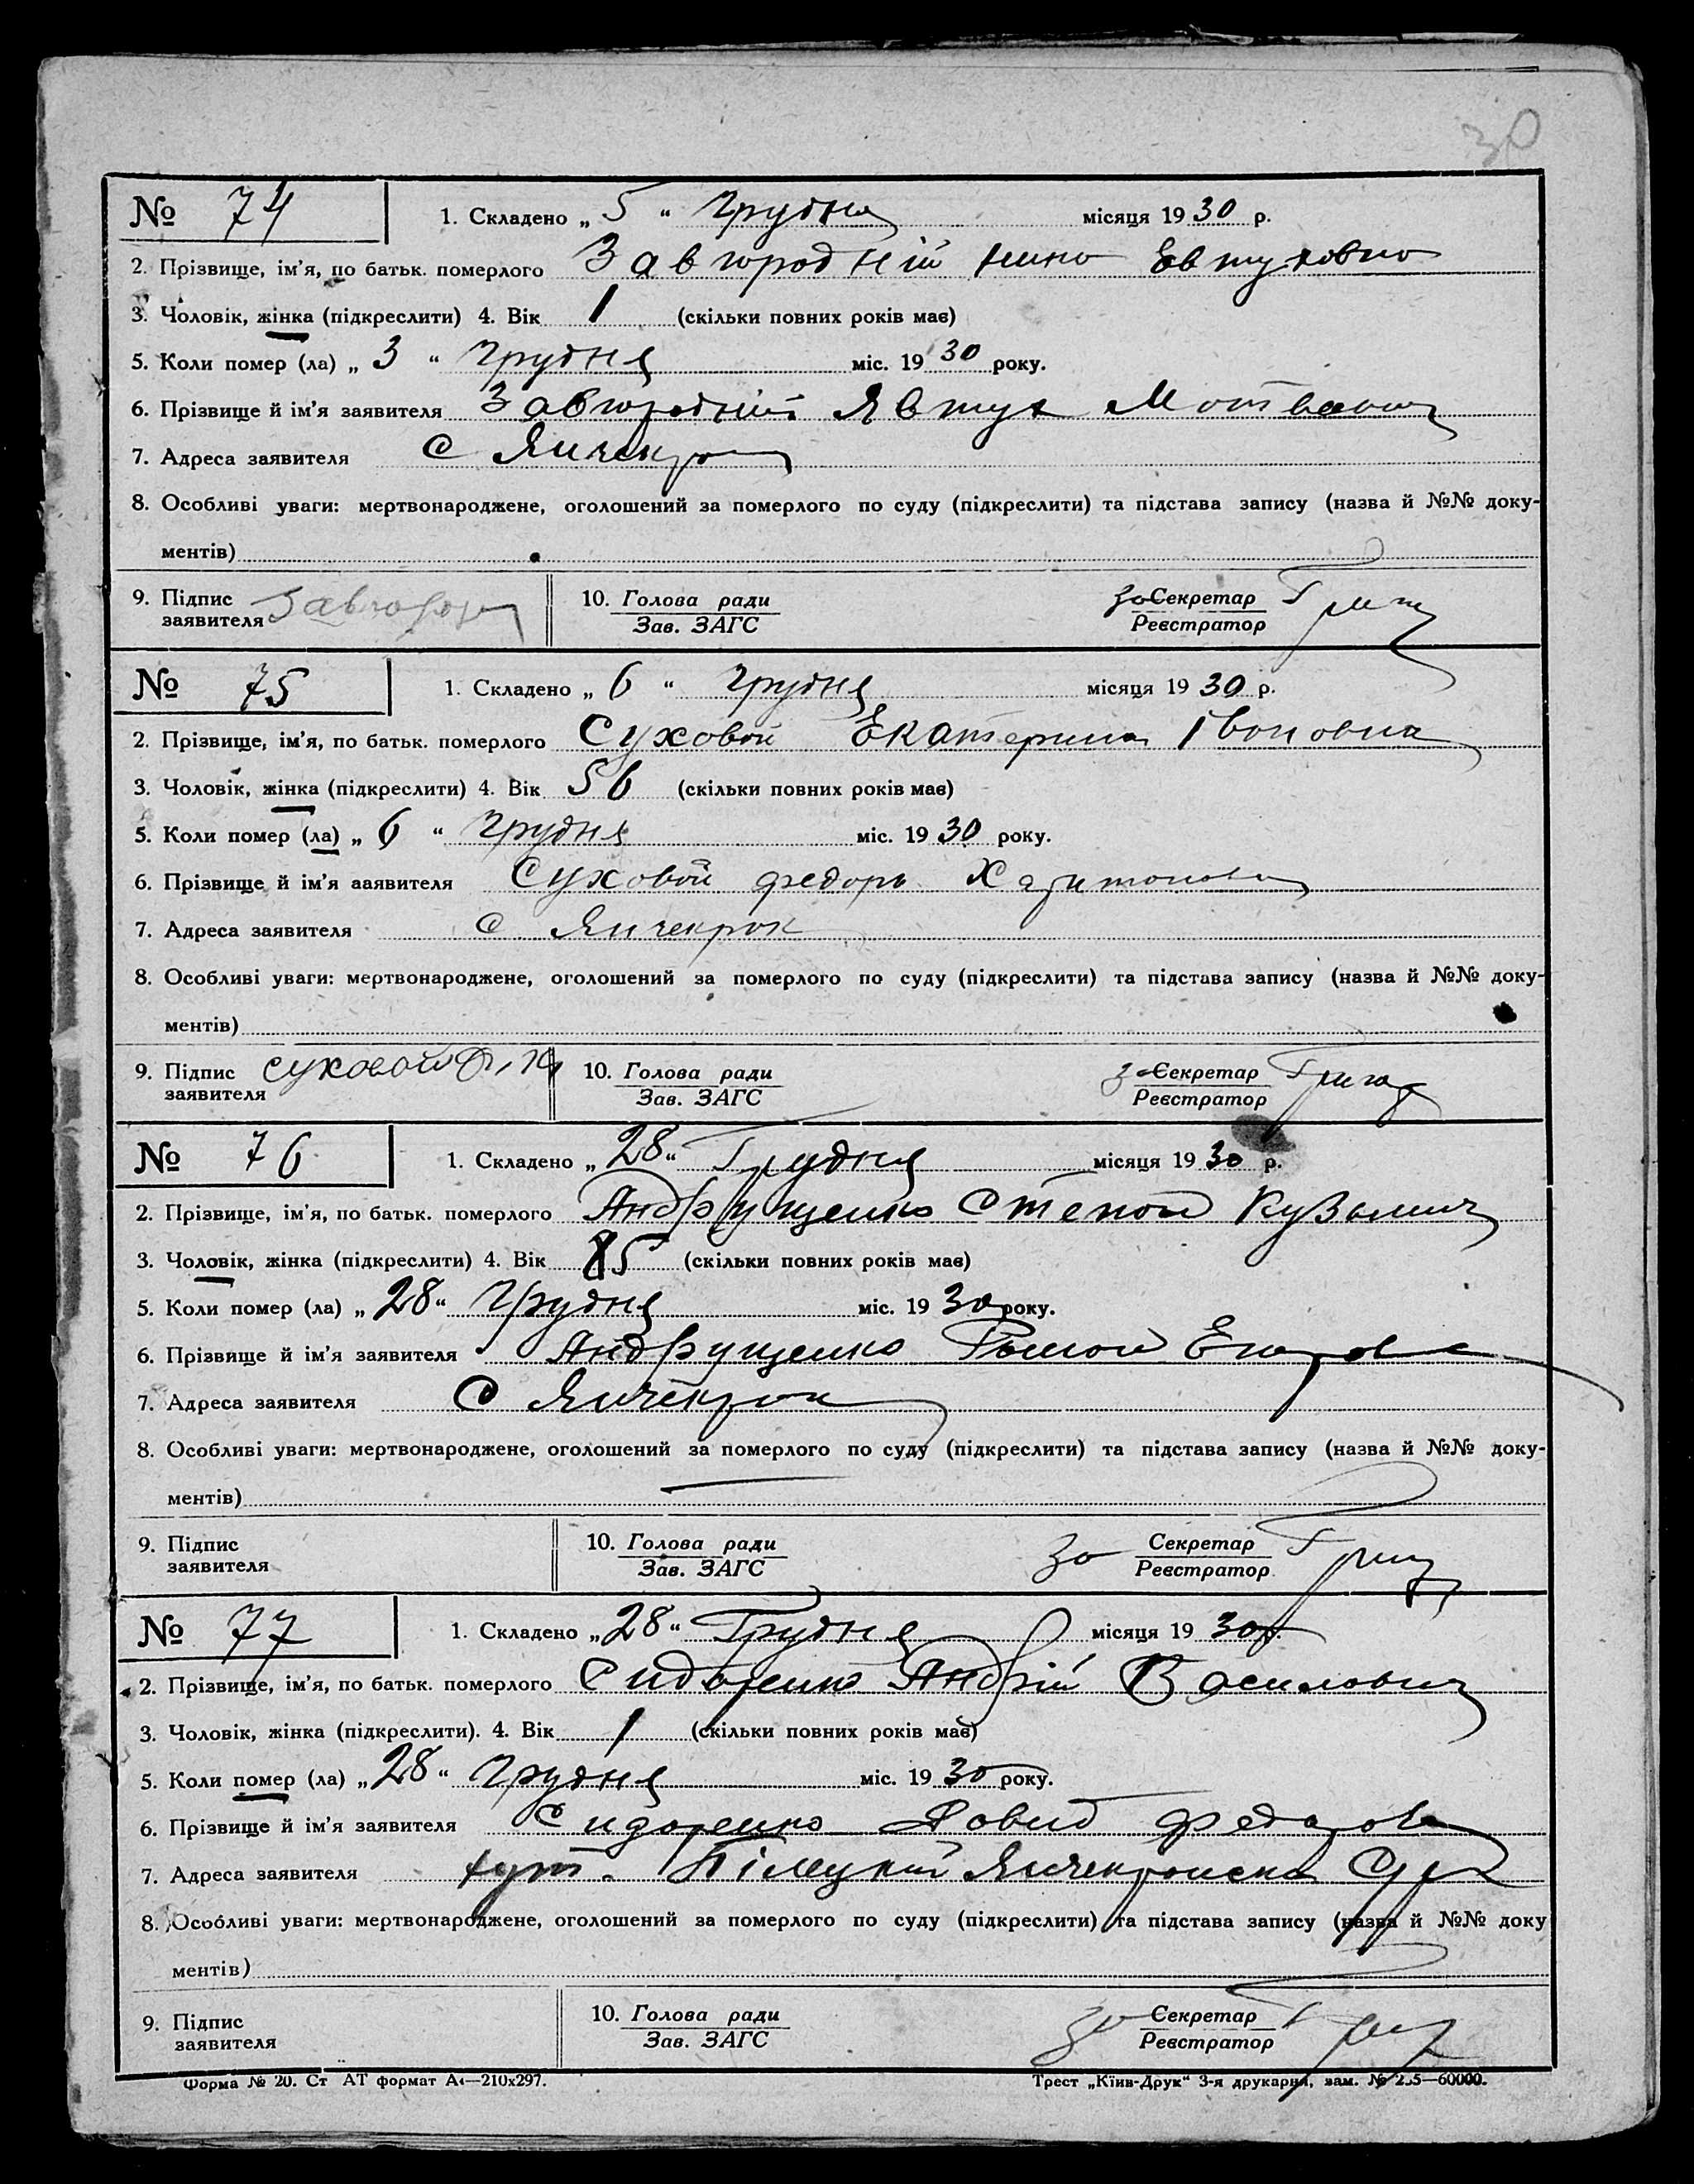 30
№ 74 1. Складено „ 5 “ Грудня місяця 19 30 р.
2. Прізвище, ім'я, по батьк. померлого Завгородній Нино Евтуховно
3. Чоловік, жінка (підкреслити) 4. Вік 1 (скільки повних років має)
5. Коли помер (ла) „ 3 “ Грудня міс. 19 30 року.
6. Прізвище й ім'я заявителя Завгородній Явтух Мотвеевич
7. Адреса заявителя с Янчекрак
8. Особливі уваги: мертвонароджене, оголошений за померлого по суду (підкреслити) та підстава запису (назва й №№ доку-
ментів)
9. Підпис заявителя 10. Голова ради За Секретар
Зав. ЗАГС Реєстратор
№ 75 1. Складено „ 6 “ Грудня місяця 19 30 р.
2. Прізвище, ім'я, по батьк. померлого Суховой Екатерина Івоновна
3. Чоловік, жінка (підкреслити) 4. Вік 56 (скільки повних років має)
5. Коли помер (ла) „ 6 “ Грудня міс. 19 30 року.
6. Прізвище й ім'я аявителя Суховой Федорь Харитонови
7. Адреса заявителя с Янчекрок
8. Особливі уваги: мертвонароджене, оголошений за померлого по суду (підкреслити) та підстава запису (назва й №№ доку-
ментів)
9. Підпис заявителя Суховой 10. Голова ради За Секретар
Зав. ЗАГС Реєстратор
№ 76 1. Складено „ 28 “ Грудня місяця 19 30 р.
2. Прізвище, ім'я, по батьк. померлого Андрущенко Степон Кузьмич
3. Чоловік, жінка (підкреслити) 4. Вік 85 (скільки повних років має)
5. Коли помер (ла) „ 28 “ Грудня міс. 19 30 року.
6. Прізвище й ім'я заявителя Андрущенко
7. Адреса заявителя С Янчекрак
8. Особливі уваги: мертвонароджене, оголошений за померлого по суду (підкреслити) та підстава запису (назва й №№ доку-
ментів)
9. Підпис заявителя 10. Голова ради За Секретар
Зав. ЗАГС Реєстратор
№ 77 1. Складено „ 28 “ Грудня місяця 19 30 р.
2. Прізвище, ім'я, по батьк. померлого Сидоренко Андрій Василович
3. Чоловік, жінка (підкреслити). 4. Вік 1 (скільки повних років має)
5. Коли помер (ла) „ 28 “ Грудня міс. 19 30 року.
6. Прізвище й ім'я заявителя Сидоренко Довид Федорови
7. Адреса заявителя хут.
8. Особливі уваги: мертвонароджене, оголошений за померлого по суду (підкреслити) та підстава запису (назва й №№ доку
ментів)
9. Підпис заявителя 10. Голова ради За Секретар
Зав. ЗАГС Реєстратор
Форма № 20. Ст АТ формат А4—210х297. Трест „Київ-Друк“ 3-я друкарня, зам. №